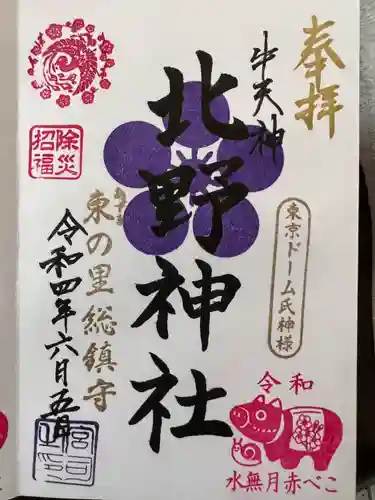 奉拝
牛天神
東京ドーム氏神様
北野神社
除災
招福
東の里総鎮守
令和四年六月五日
令和
水無月赤べこ